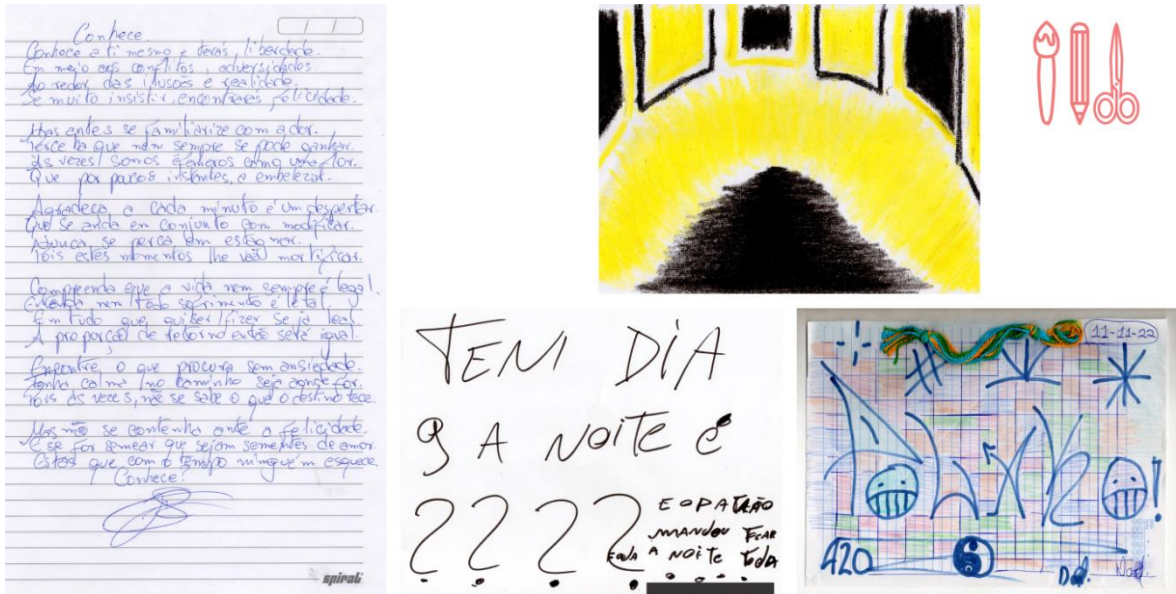 Conhece
Conhece a ti mesmo e terás, liberdade.
Em meio aos conflitos, adversidades.
Ao redor, das ilusões e realidade.
Se muito insistir, encontrarás, felicidade.
Mas antes se familiarize com a dor.
Perceba que nem sempre se pode ganhar.
Às vezes somos efêmeros como uma flor.
Que por poucos instantes, a embelezar.
Agradeça a cada minuto é um despertar.
Que se anda em conjunto com modificar.
Nunca se perca em estagnar.
Pois estes momentos lhe vão mortificar.
Compreenda que a vida nem sempre é legal.
Entenda nem todo sofrimento é letal.
Em tudo que, quiser fizer seja leal.
A proporção de retorno então será igual.
Encontre, o que procura sem ansiedade.
Tenha calma no caminho seja aonde for.
Pois às vezes, não se sabe o que o destino tece.
Mas não se contenha ante a felicidade.
E se for semear que sejam sementes de amor.
Estas que com o tempo ninguém esquece.
Conhece!
spiral
TEM DIA
Q A NOITE É
????
E O PATRÃO
MANDOU FICAR
A NOITE TODA
11-11-22
420